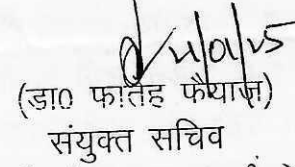 21/01/25
(डा0 फातेह फैयाज)
संयुक्त सचिव